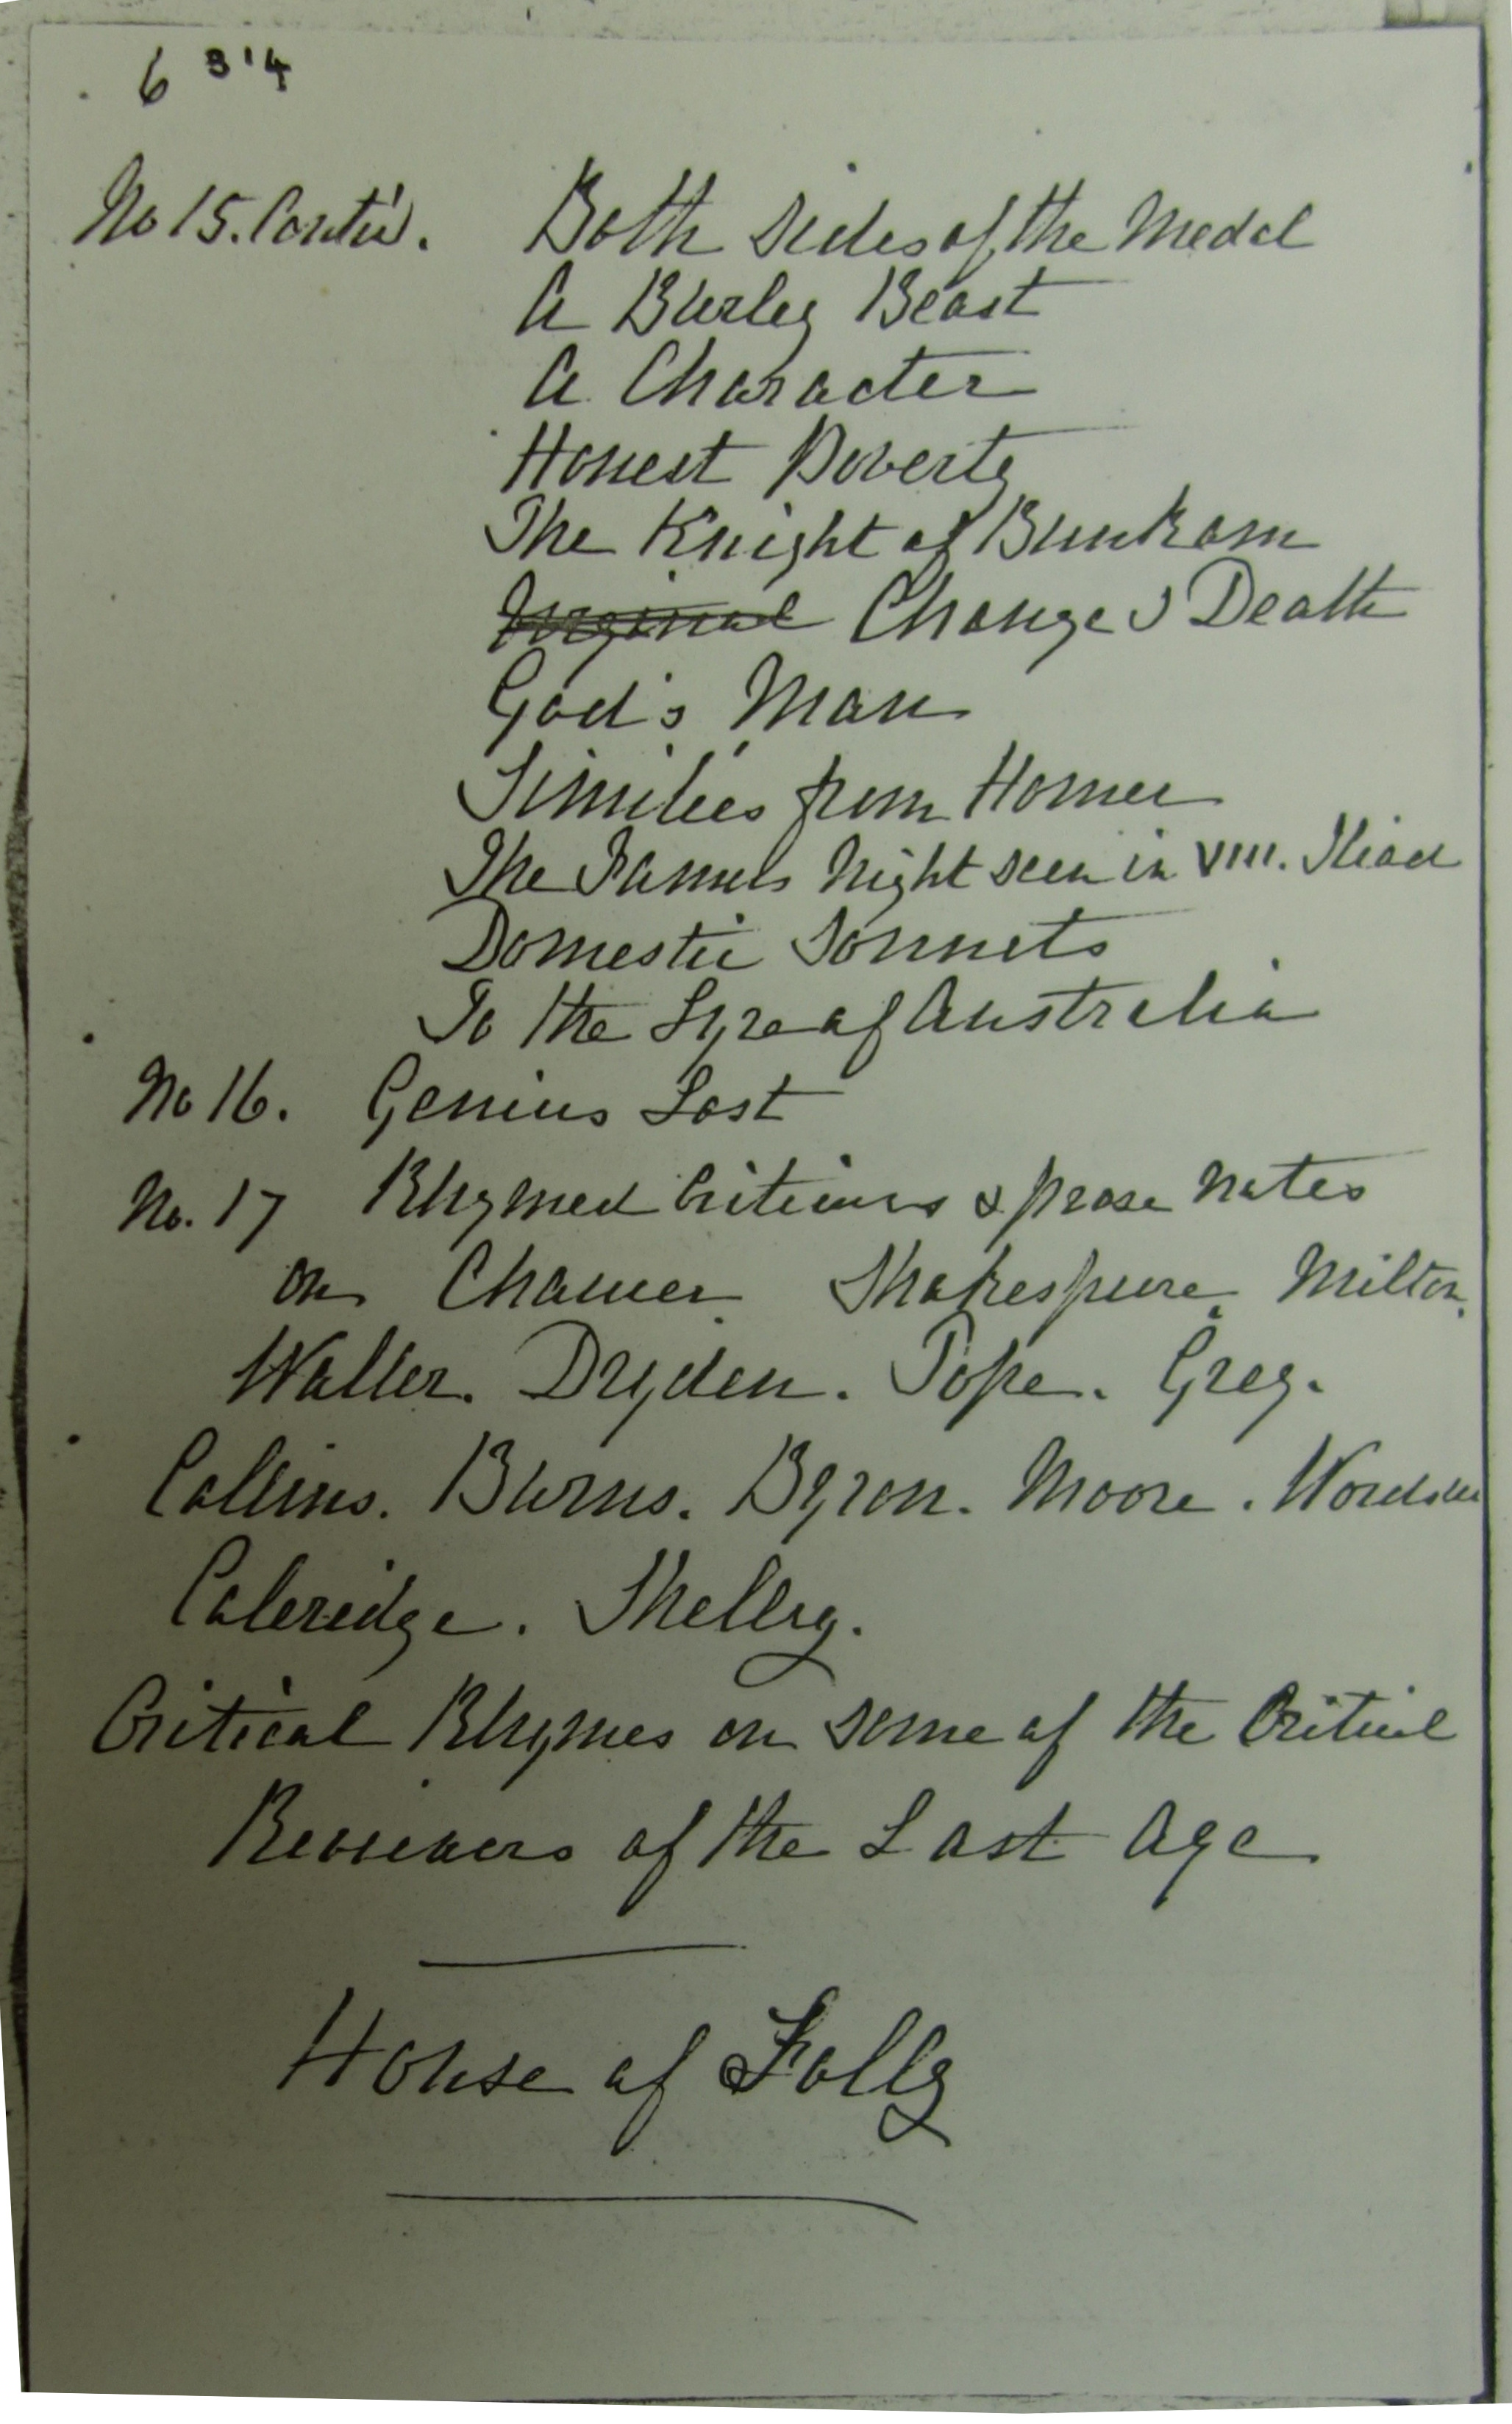 6 314
No 15. Contd. Both Sides of the Medal
A Burley Beast
A Character
Honest Poverty
The Knight of Bunkom
Change & Death
God's Man
Similies from Homer
The Famous Night seen in VIII. Iliad
Domestic Sonnets
To the Lyre of Australia
No 16. Genius Lost
No. 17 Rhymed Criticisms & prose notes
on Chaucer Shakespeare. Milton.
Waller. Dryden. Pope. Grey.
Collins. Burns. Byron. Moore. Wordsw
Coleridge. Shelley.
Critical Rhymes on some of the Critical
Reviewers of the Last Age
House of Folly